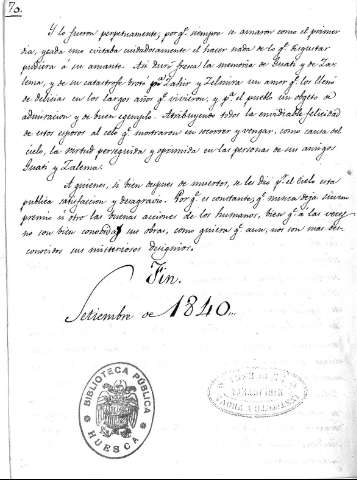 70.
Y lo fueron perpetuamente, porq.e siempre se amaron como el primer
dia, y cada uno evitaba cuidadosamente el hacer nada de lo q.e disgustar
pudiera á su amante. Asi duró fresca la memoria de Guati y de Za-
lema, y de su catastrofe brotó p.a Zahir y Zelmira un amor q.e los llenó
de delicias en los largos años q.e vivieron, y p.a el pueblo un objeto de
admiracion y de buen egemplo. Atribuyendo todos la envidiable felicidad
de estos esposos al celo q.e mostraron en socorrer y vengar, como causa del
cielo, la virtud perseguida y oprimida en las personas de sus amigos
Guati y Zalema.
A quienes, si bien despues de muertos, se les dió p.r el cielo esta
publica satisfaccion y desagravio. Porq.e es constante, q.e nunca deja sin un
premio ú otro las buenas acciones de los humanos, bien q.e á las veces
no son bien conocidas sus obras, como quiera q.e aun, nos son mas des-
conocidos sus misteriosos designios.
Fin.
Setiembre de 1840
BIBLIOTECA PÚBLICA
HUESCA